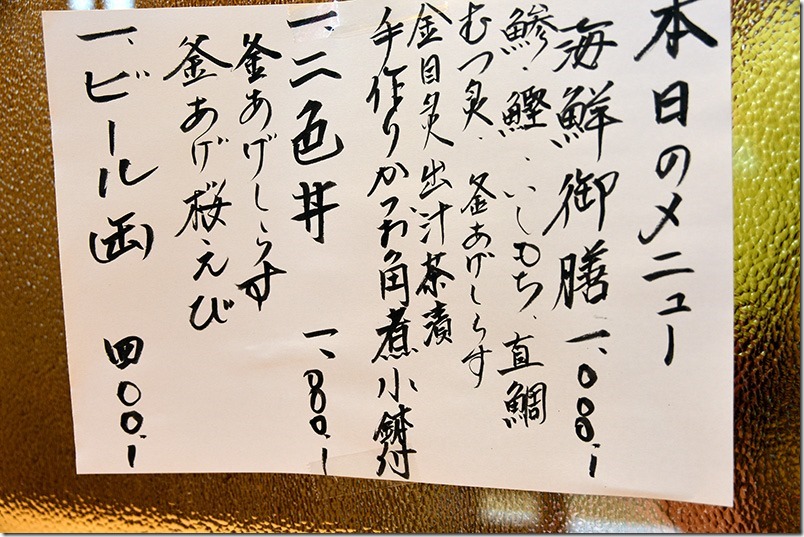 本日のメニュー
海鮮御膳 一、〇八〇.-
鯵・鰹・いしもち、真鯛
むつ炙、釜あげしらす
金目炙 出汁茶漬
手作りかつお角煮小鉢付
一、二色丼 一、八〇.-
釜あげしらす
釜あげ桜えび
一、ビール(缶) 四〇〇.-